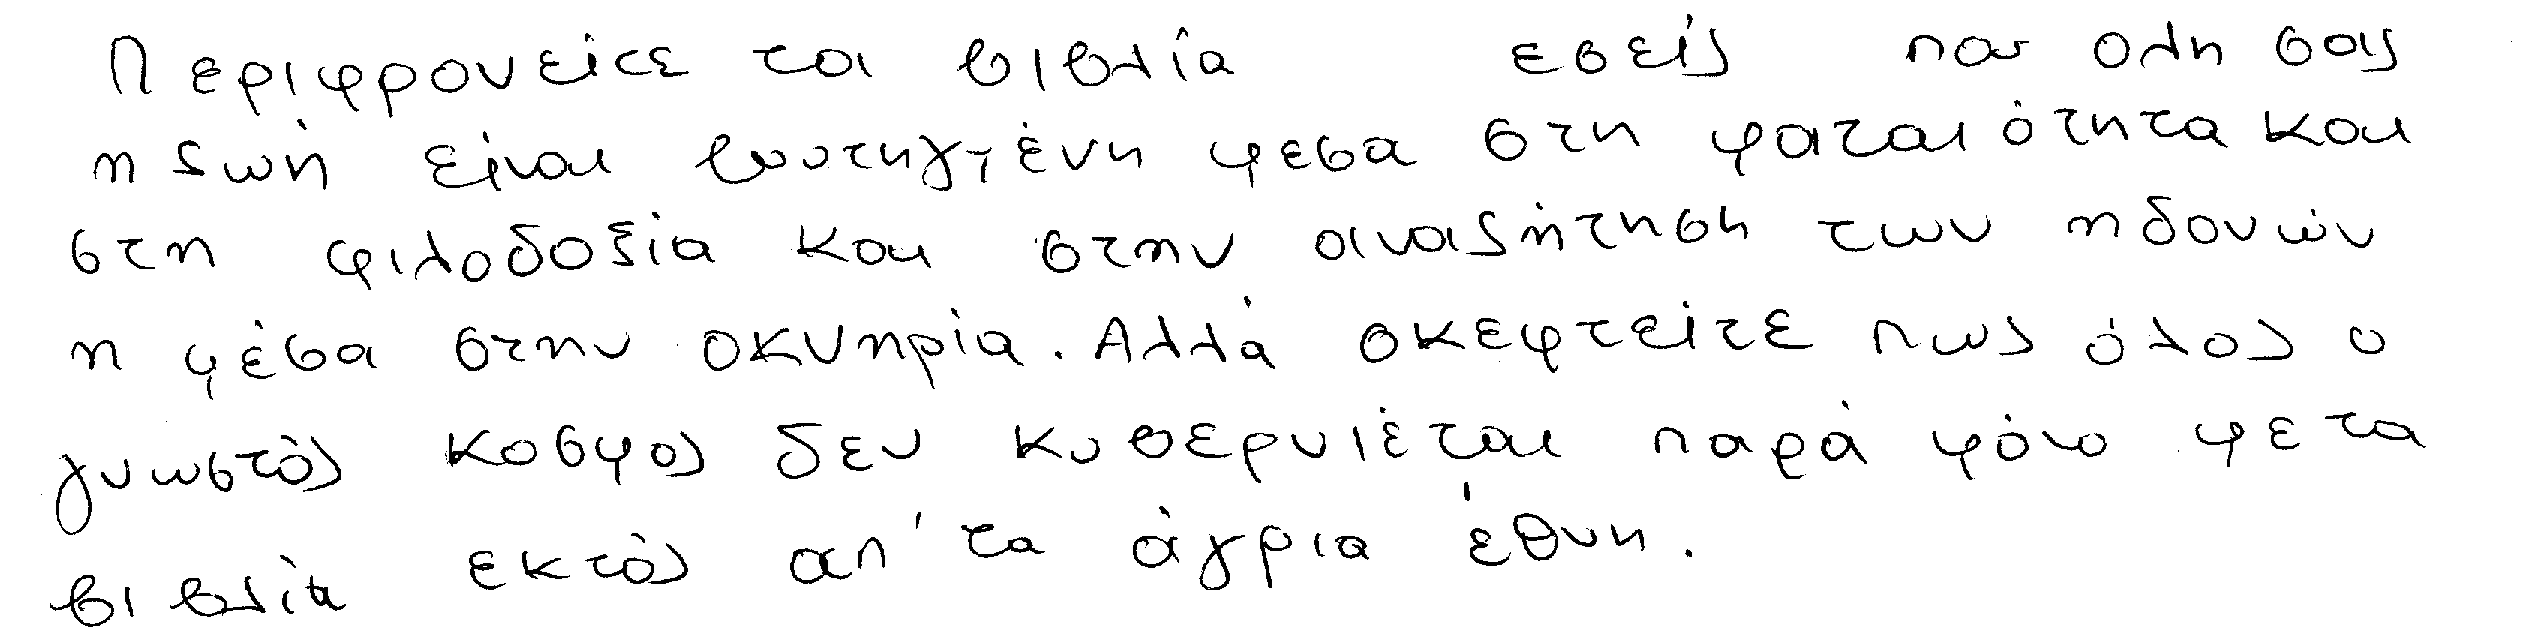 Περιφρονείτε τα βιβλία εσείς που ολη σας
η ζωή είναι βουτηγμένη μεσα στη ματαιότητα και
στη φιλοδοξία και στην αναζήτηση των ηδονών
η μέσα στην οκνηρία. Αλλά σκεφτείτε πως όλος ο
γνωστός κοσμος δεν κυβερνιέται παρά μόνο με τα
βιβλία εκτός απ' τα άγρια έθνη.